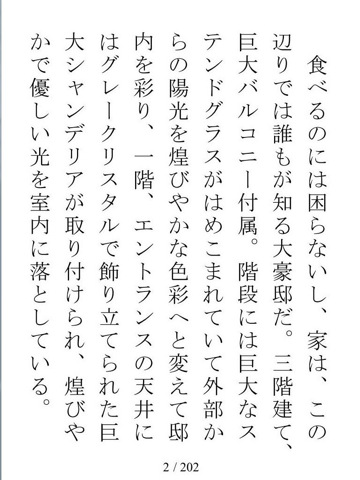 食べるのには困らないし、家は、この
辺りでは誰もが知る大豪邸だ。三階建て、
巨大バルコニー付属。階段には巨大なス
テンドグラスがはめこまれていて外部か
らの陽光を煌びやかな色彩へと変えて邸
内を彩り、一階、エントランスの天井に
はグレークリスタルで飾り立てられた巨
大シャンデリアが取り付けられ、煌びや
かで優しい光を室内に落としている。
2 / 202